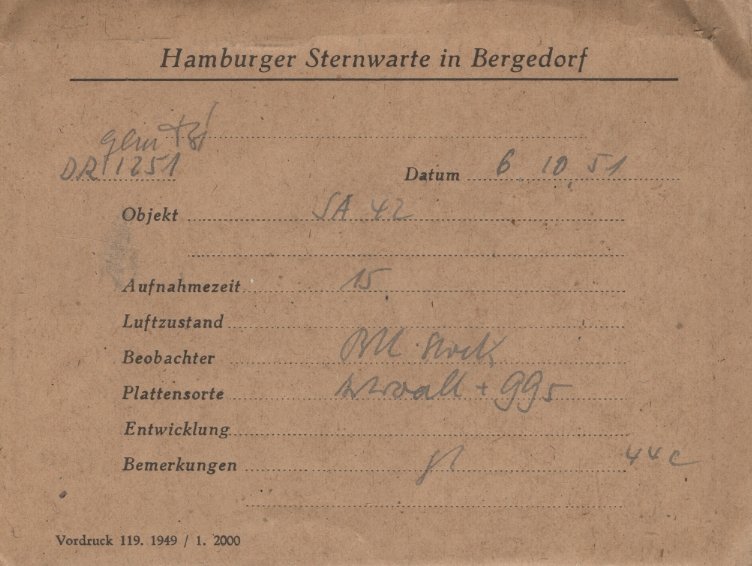 Hamburger Sternwarte in Bergedorf
DR 1251
Datum 6 10 51
Objekt SA 42
Aufnahmezeit 15
Luftzustand
Beobachter Stock
Plattensorte + 995
Entwicklung
Bemerkungen 44 c
Vordruck 119. 1949 / 1. 2000